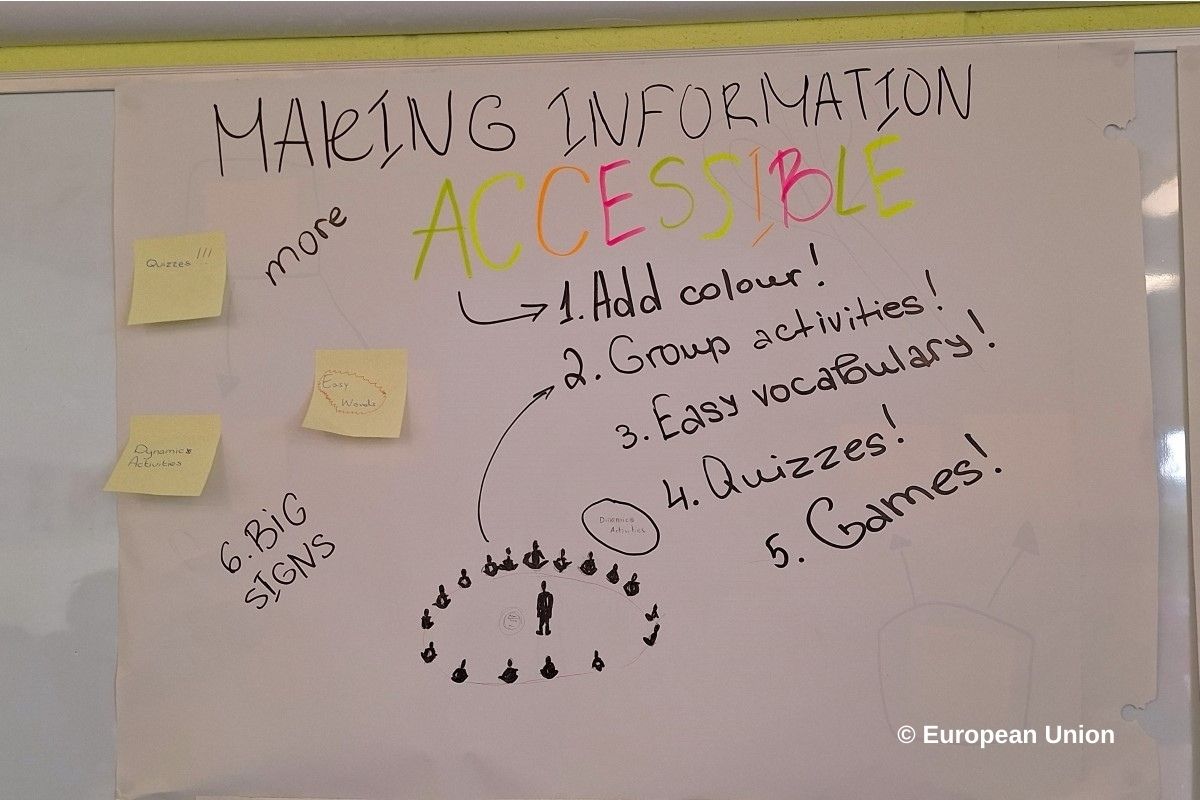 MAKING INFORMATION
more
ACCESSIBLE
1. Add colour!
2. Group activities!
3. Easy vocabulary!
4. Quizzes!
5. Games!
6. BiG
SIGNS
Quizzes !!!
Easy
Words
Dynamics
Activities
Dinamics
Activities
© European Union